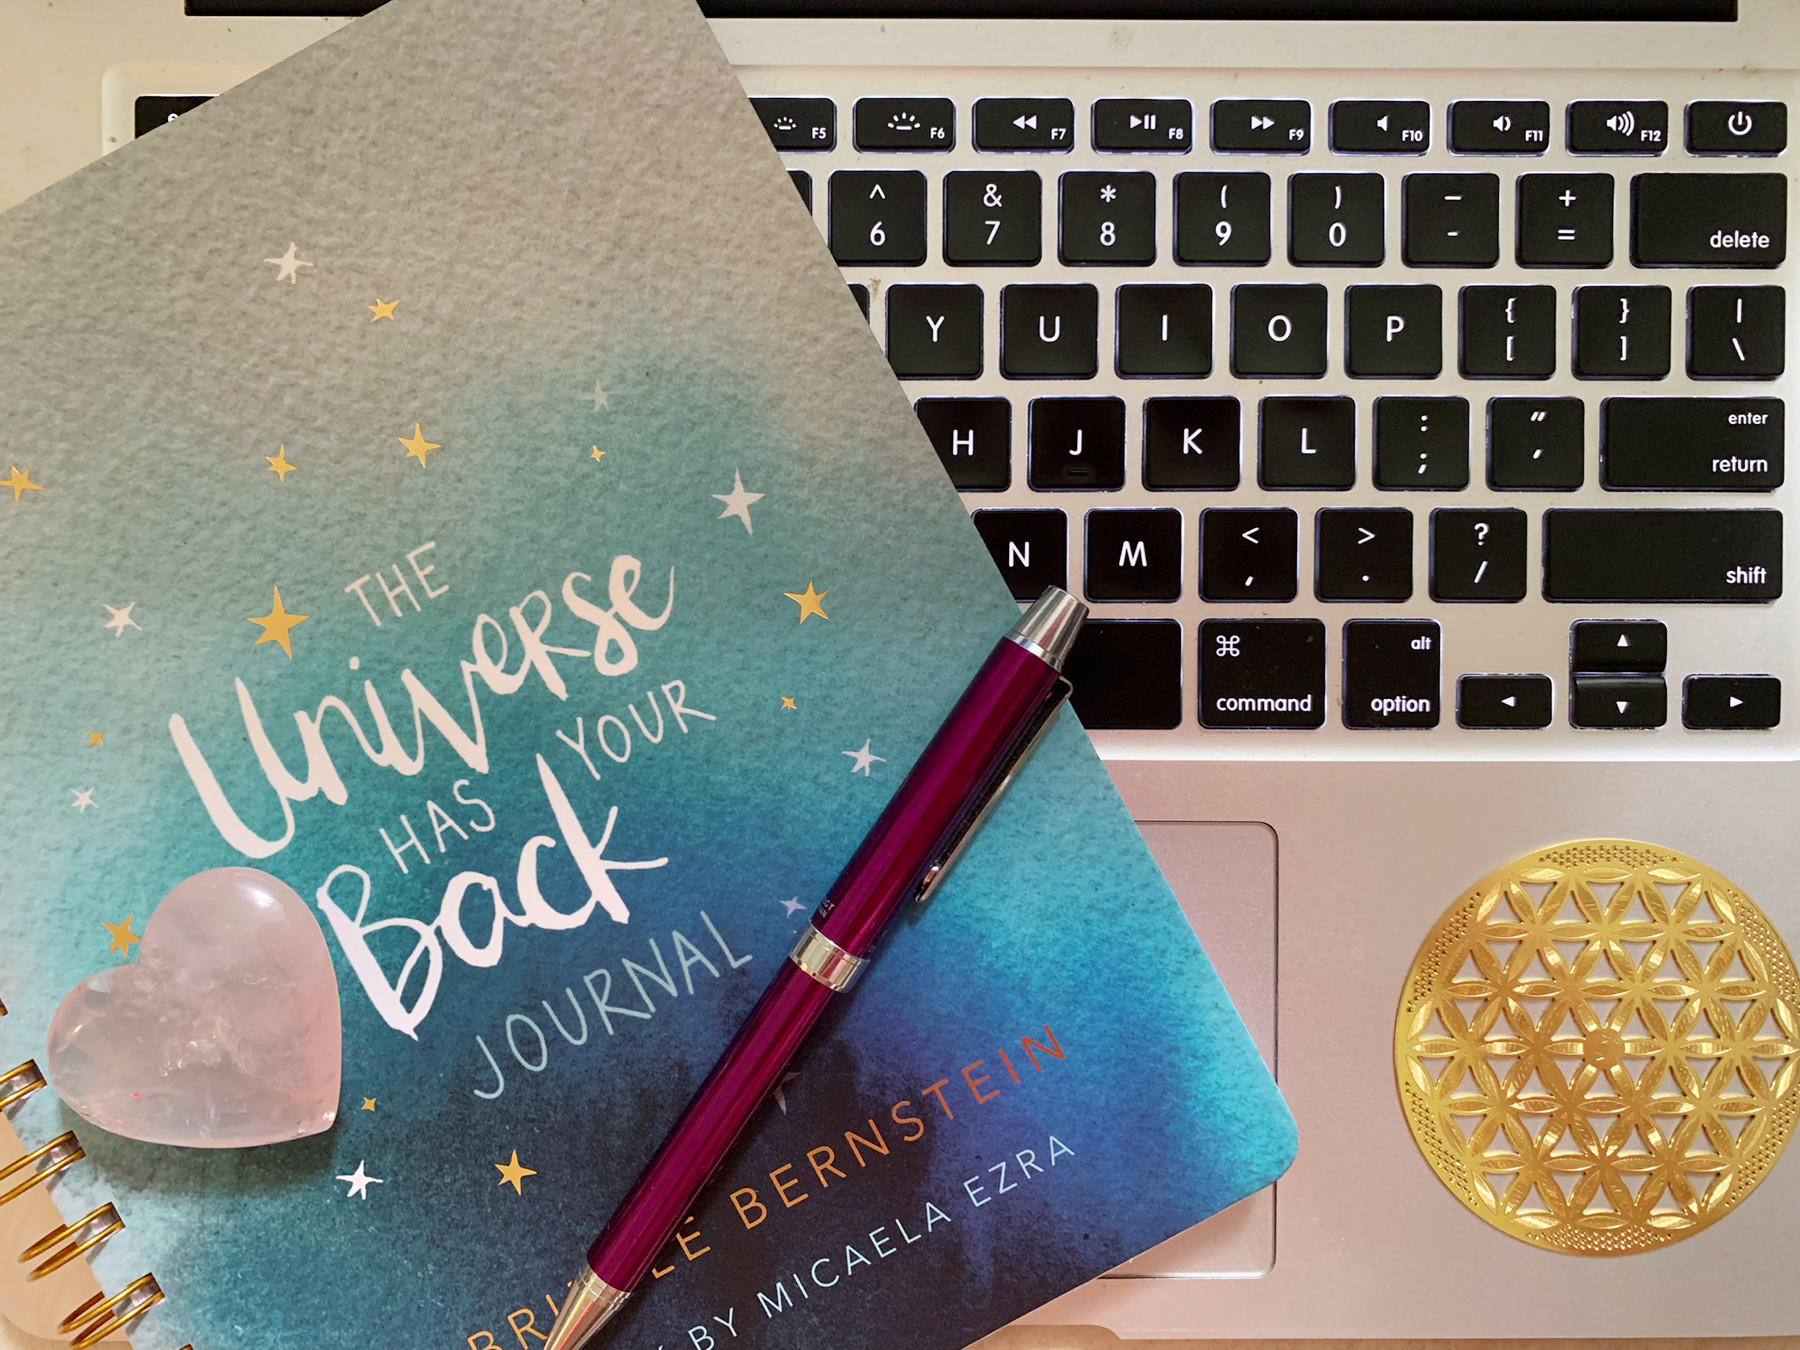 THE
Universe
HAS YOUR
Back
JOURNAL
BERNSTEIN
BY MICAELA EZRA
F5 F6 F7 F8 F9 F10 F11 F12
^ & * ( ) — +
6 7 8 9 0 - =
delete
Y U I O P { [ } ] | \
H J K L : ; " '
enter
return
N M < , > . ? /
shift
⌘ alt
command option